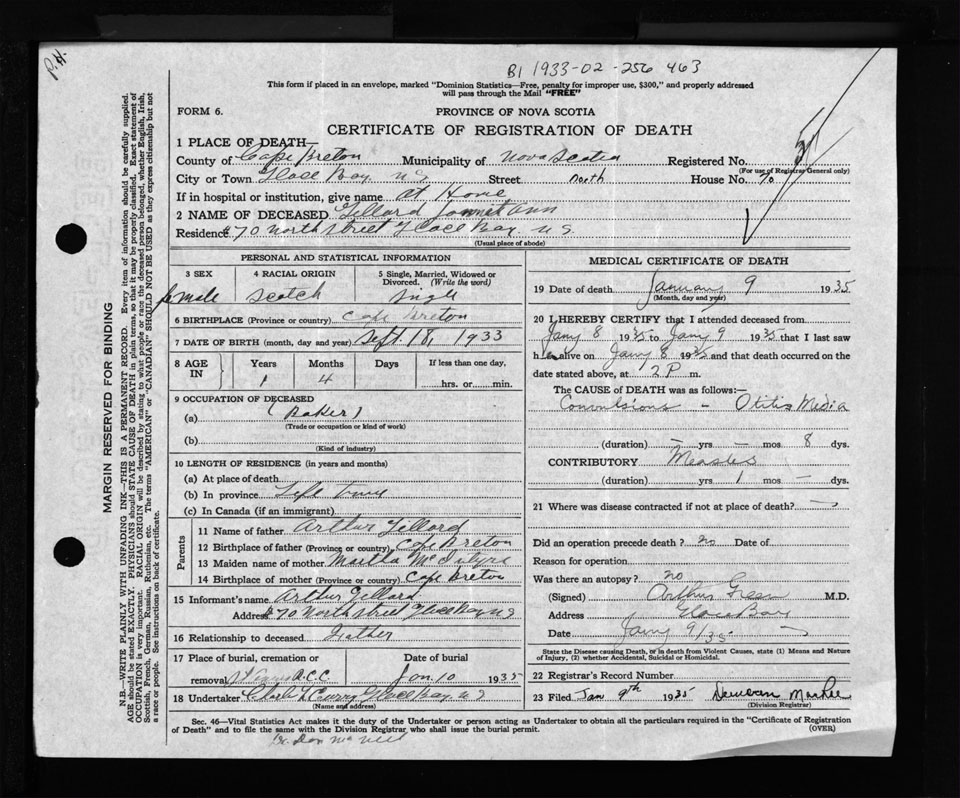 P.H.
B1 1933-02-256463
This form if placed in an envelope, marked "Dominion Statistics—Free, penalty for improper use, $300," and properly addressed
will pass through the Mail "FREE"
FORM 6.
PROVINCE OF NOVA SCOTIA
CERTIFICATE OF REGISTRATION OF DEATH
1 PLACE OF DEATH—
County of Cape Breton Municipality of Nova Scotia Registered No.
(For use of Registrar General only)
City or Town Glace Bay N S Street North House No. 70
If in hospital or institution, give name at Home
2 NAME OF DECEASED Gillard Ann
Residence 70 North street Glace Bay N S
(Usual place of abode)
PERSONAL AND STATISTICAL INFORMATION
3 SEX 4 RACIAL ORIGIN 5 Single, Married, Widowed or Divorced. (Write the word)
female Scotch Single
6 BIRTHPLACE (Province or country) Cape Breton
7 DATE OF BIRTH (month, day and year) Sept. 18, 1933
8 AGE IN Years Months Days If less than one day,
1 4 hrs. or min.
9 OCCUPATION OF DECEASED
(a)
(Trade or occupation or kind of work)
(b)
(Kind of industry)
10 LENGTH OF RESIDENCE (in years and months)
(a) At place of death
(b) In province Life Time
(c) In Canada (if an immigrant)
Parents
11 Name of father Arthur Gillard
12 Birthplace of father (Province or country) Cape Breton
13 Maiden name of mother Martha
14 Birthplace of mother (Province or country) Cape Breton
15 Informant's name Arthur Gillard
Address 70 North street Glace Bay N S
16 Relationship to deceased Father
17 Place of burial, cremation or removal Date of burial
Jan. 10 1935
18 Undertaker Curry Glace Bay N S
(Name and address)
MEDICAL CERTIFICATE OF DEATH
19 Date of death January 9 1935
(Month, day and year)
20 I HEREBY CERTIFY that I attended deceased from
Jany 8 1935 to Jany 9 1935 that I last saw
h alive on Jany 8 1935 and that death occurred on
date stated above, at 12 P m.
The CAUSE of DEATH was as follows:—
Convulsions - Otitis Media
(duration) — yrs — mos 8 dys.
CONTRIBUTORY Measles
(duration) yrs 1 mos — dys.
21 Where was disease contracted if not at place of death? —
Did an operation precede death? no Date of
Reason for operation
Was there an autopsy? no
(Signed) Arthur M.D.
Address Glace Bay
Date Jany 9/35
State the Disease causing Death, or in death from Violent Causes, state (1) Means and Nature
of Injury, (2) whether Accidental, Suicidal or Homicidal.
22 Registrar's Record Number
23 Filed Jan 9th 1935
(Division Registrar)
Sec. 46—Vital Statistics Act makes it the duty of the Undertaker or person acting as Undertaker to obtain all the particulars required in the "Certificate of Registration
of Death" and to file the same with the Division Registrar who shall issue the burial permit.
(OVER)
MARGIN RESERVED FOR BINDING
N.B.—WRITE PLAINLY WITH UNFADING INK—THIS IS A PERMANENT RECORD. Every item of information should be carefully supplied.
AGE should be stated EXACTLY. PHYSICIANS should STATE CAUSE OF DEATH in plain terms, so that it may be properly classified. Exact statement of
OCCUPATION is very important. RACIAL ORIGIN will be described by stating to what people or race the deceased person belonged, whether English, Irish,
Scottish, French, German, Russian, Ruthenian, etc. The terms "AMERICAN" or "CANADIAN" SHOULD NOT BE USED as they express citizenship but not
a race or people. See instructions on back of certificate.